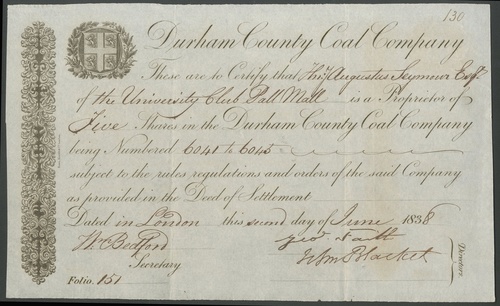 130
Durham County Coal Company
These are to Certify that Thos Augustus Seymour Esqr
of the University Club Pall Mall is a Proprietor of
Five Shares in the Durham County Coal Company
being Numbered 6041 to 6045
subject to the rules regulations and orders of the said Company
as provided in the Deed of Settlement
Dated in London this second day of June 1838
Wm Bedford
Secretary
Geo
Wm Blacket
Directors
Folio. 151